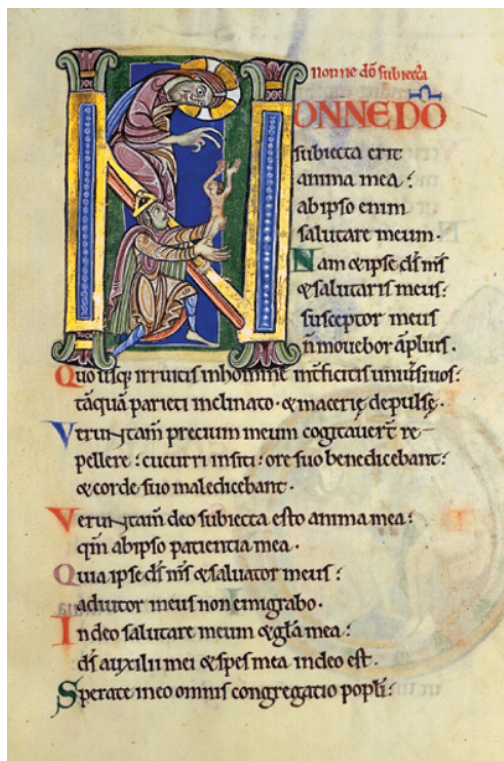 Nonne dõ subiecta
NONNE DÕ
subiecta erit
anima mea?
ab ipso enim
salutare meum.
Nam & ipse d̄s m̄s
& salutaris meus:
susceptor meus
n̄ movebor āplius.
Quo usq; irruitis in homine int̄ficitis univ̄sivos:
tāquā parieti inclinato. & macerię depulsę.
Verunt̄am precium meum cogitaver̄t re-
pellere: cucurri in siti: ore suo benedicebant:
& corde suo maledicebant.
Verunt̄am deo subiecta esto anima mea:
qm̄ ab ipso patientia mea.
Quia ipse d̄s m̄s & salvator meus:
adiutor meus non emigrabo.
In deo salutare meum & gl̄a mea:
d̄s auxilii mei & spes mea in deo est.
Sperate in eo omnis congregatio popl̄i: